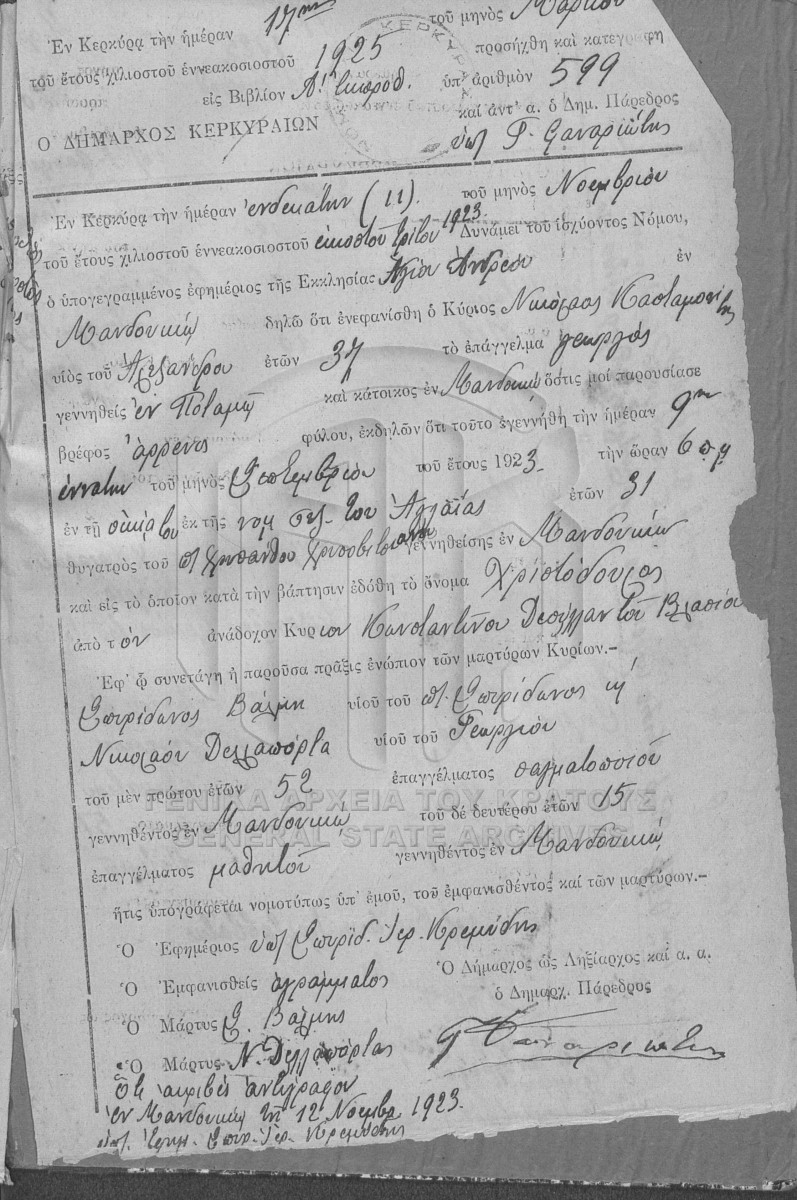 Ἐν Κερκύρᾳ τὴν ἡμέραν 17ην τοῦ μηνὸς Μαρτίου
τοῦ ἔτους χιλιοστοῦ ἐννεακοσιοστοῦ 1925 προσήχθη καὶ κατεγράφη
εἰς Βιβλίον Α! Ἐκπροθ. ὑπ' ἀριθμὸν 599
Ο ΔΗΜΑΡΧΟΣ ΚΕΡΚΥΡΑΙΩΝ καὶ ἀντ' α. ὁ Δημ. Πάρεδρος
Ἐν Κερκύρᾳ τὴν ἡμέραν ἑνδεκάτην (11). τοῦ μηνὸς Νοεμβρίου
τοῦ ἔτους χιλιοστοῦ ἐννεακοσιοστοῦ εἰκοστοῦ τρίτου 1923. Δυνάμει τοῦ ἰσχύοντος Νόμου,
ὁ ὑπογεγραμμένος ἐφημέριος τῆς Ἐκκλησίας Ἁγίου Ἀνδρέου ἐν
Μανδουκίῳ δηλῶ ὅτι ἐνεφανίσθη ὁ Κύριος Νικόλαος Κασταμονίτης
υἱὸς τοῦ Ἀλεξάνδρου ἐτῶν 37 τὸ ἐπάγγελμα γεωργός
γεννηθεὶς ἐν Ποταμῷ καὶ κάτοικος ἐν Μανδουκίῳ ὅστις μοὶ παρουσίασε
βρέφος ἄρρενος φύλου, ἐκδηλῶν ὅτι τοῦτο ἐγεννήθη τὴν ἡμέραν 9ην
ἐννάτην τοῦ μηνὸς Σεπτεμβρίου τοῦ ἔτους 1923. τὴν ὥραν 6 π.μ
ἐν τῇ οἰκίᾳ του ἐκ τῆς νομ συζ. του Ἀγλαΐας ἐτῶν 31
θυγατρὸς τοῦ γεννηθείσης ἐν Μανδουκίῳ
καὶ εἰς τὸ ὁποῖον κατὰ τὴν βάπτισιν ἐδόθη τὸ ὄνομα Χριστόδουλος
ἀπὸ τὸν ἀνάδοχον Κύριον Κωνσταντῖνον Δεσύλλαν τοῦ Βλασίου
Ἐφ' ᾧ συνετάγη ἡ παροῦσα πρᾶξις ἐνώπιον τῶν μαρτύρων Κυρίων.—
Σπυρίδωνος Βάλμη υἱοῦ τοῦ Σπυρίδωνος
Νικολάου Δελλαπόρτα υἱοῦ τοῦ Γεωργίου
τοῦ μὲν πρώτου ἐτῶν 52 ἐπαγγέλματος σαγματοποιοῦ
γεννηθέντος ἐν Μανδουκίῳ τοῦ δὲ δευτέρου ἐτῶν 15
ἐπαγγέλματος μαθητοῦ γεννηθέντος ἐν Μανδουκίῳ
ἥτις ὑπογράφεται νομοτύπως ὑπ' ἐμοῦ, τοῦ ἐμφανισθέντος καὶ τῶν μαρτύρων.—
Ὁ Ἐφημέριος ὑπ/ Σπυρίδ. Ἱερ. Κρεμύδης
Ὁ Ἐμφανισθεὶς ἀγράμματος Ὁ Δήμαρχος ὡς Ληξίαρχος καὶ α. α.
ὁ Δημαρχ. Πάρεδρος
Ὁ Μάρτυς Σ. Βάλμης
Ὁ Μάρτυς Ν. Δελλαπόρτας
Ὅτι ἀκριβὲς ἀντίγραφον
ἐν Μανδουκίῳ τῇ 12 Νοεμβρ 1923.
ΓΕΝΙΚΑ ΑΡΧΕΙΑ ΤΟΥ ΚΡΑΤΟΥΣ
GENERAL STATE ARCHIVES